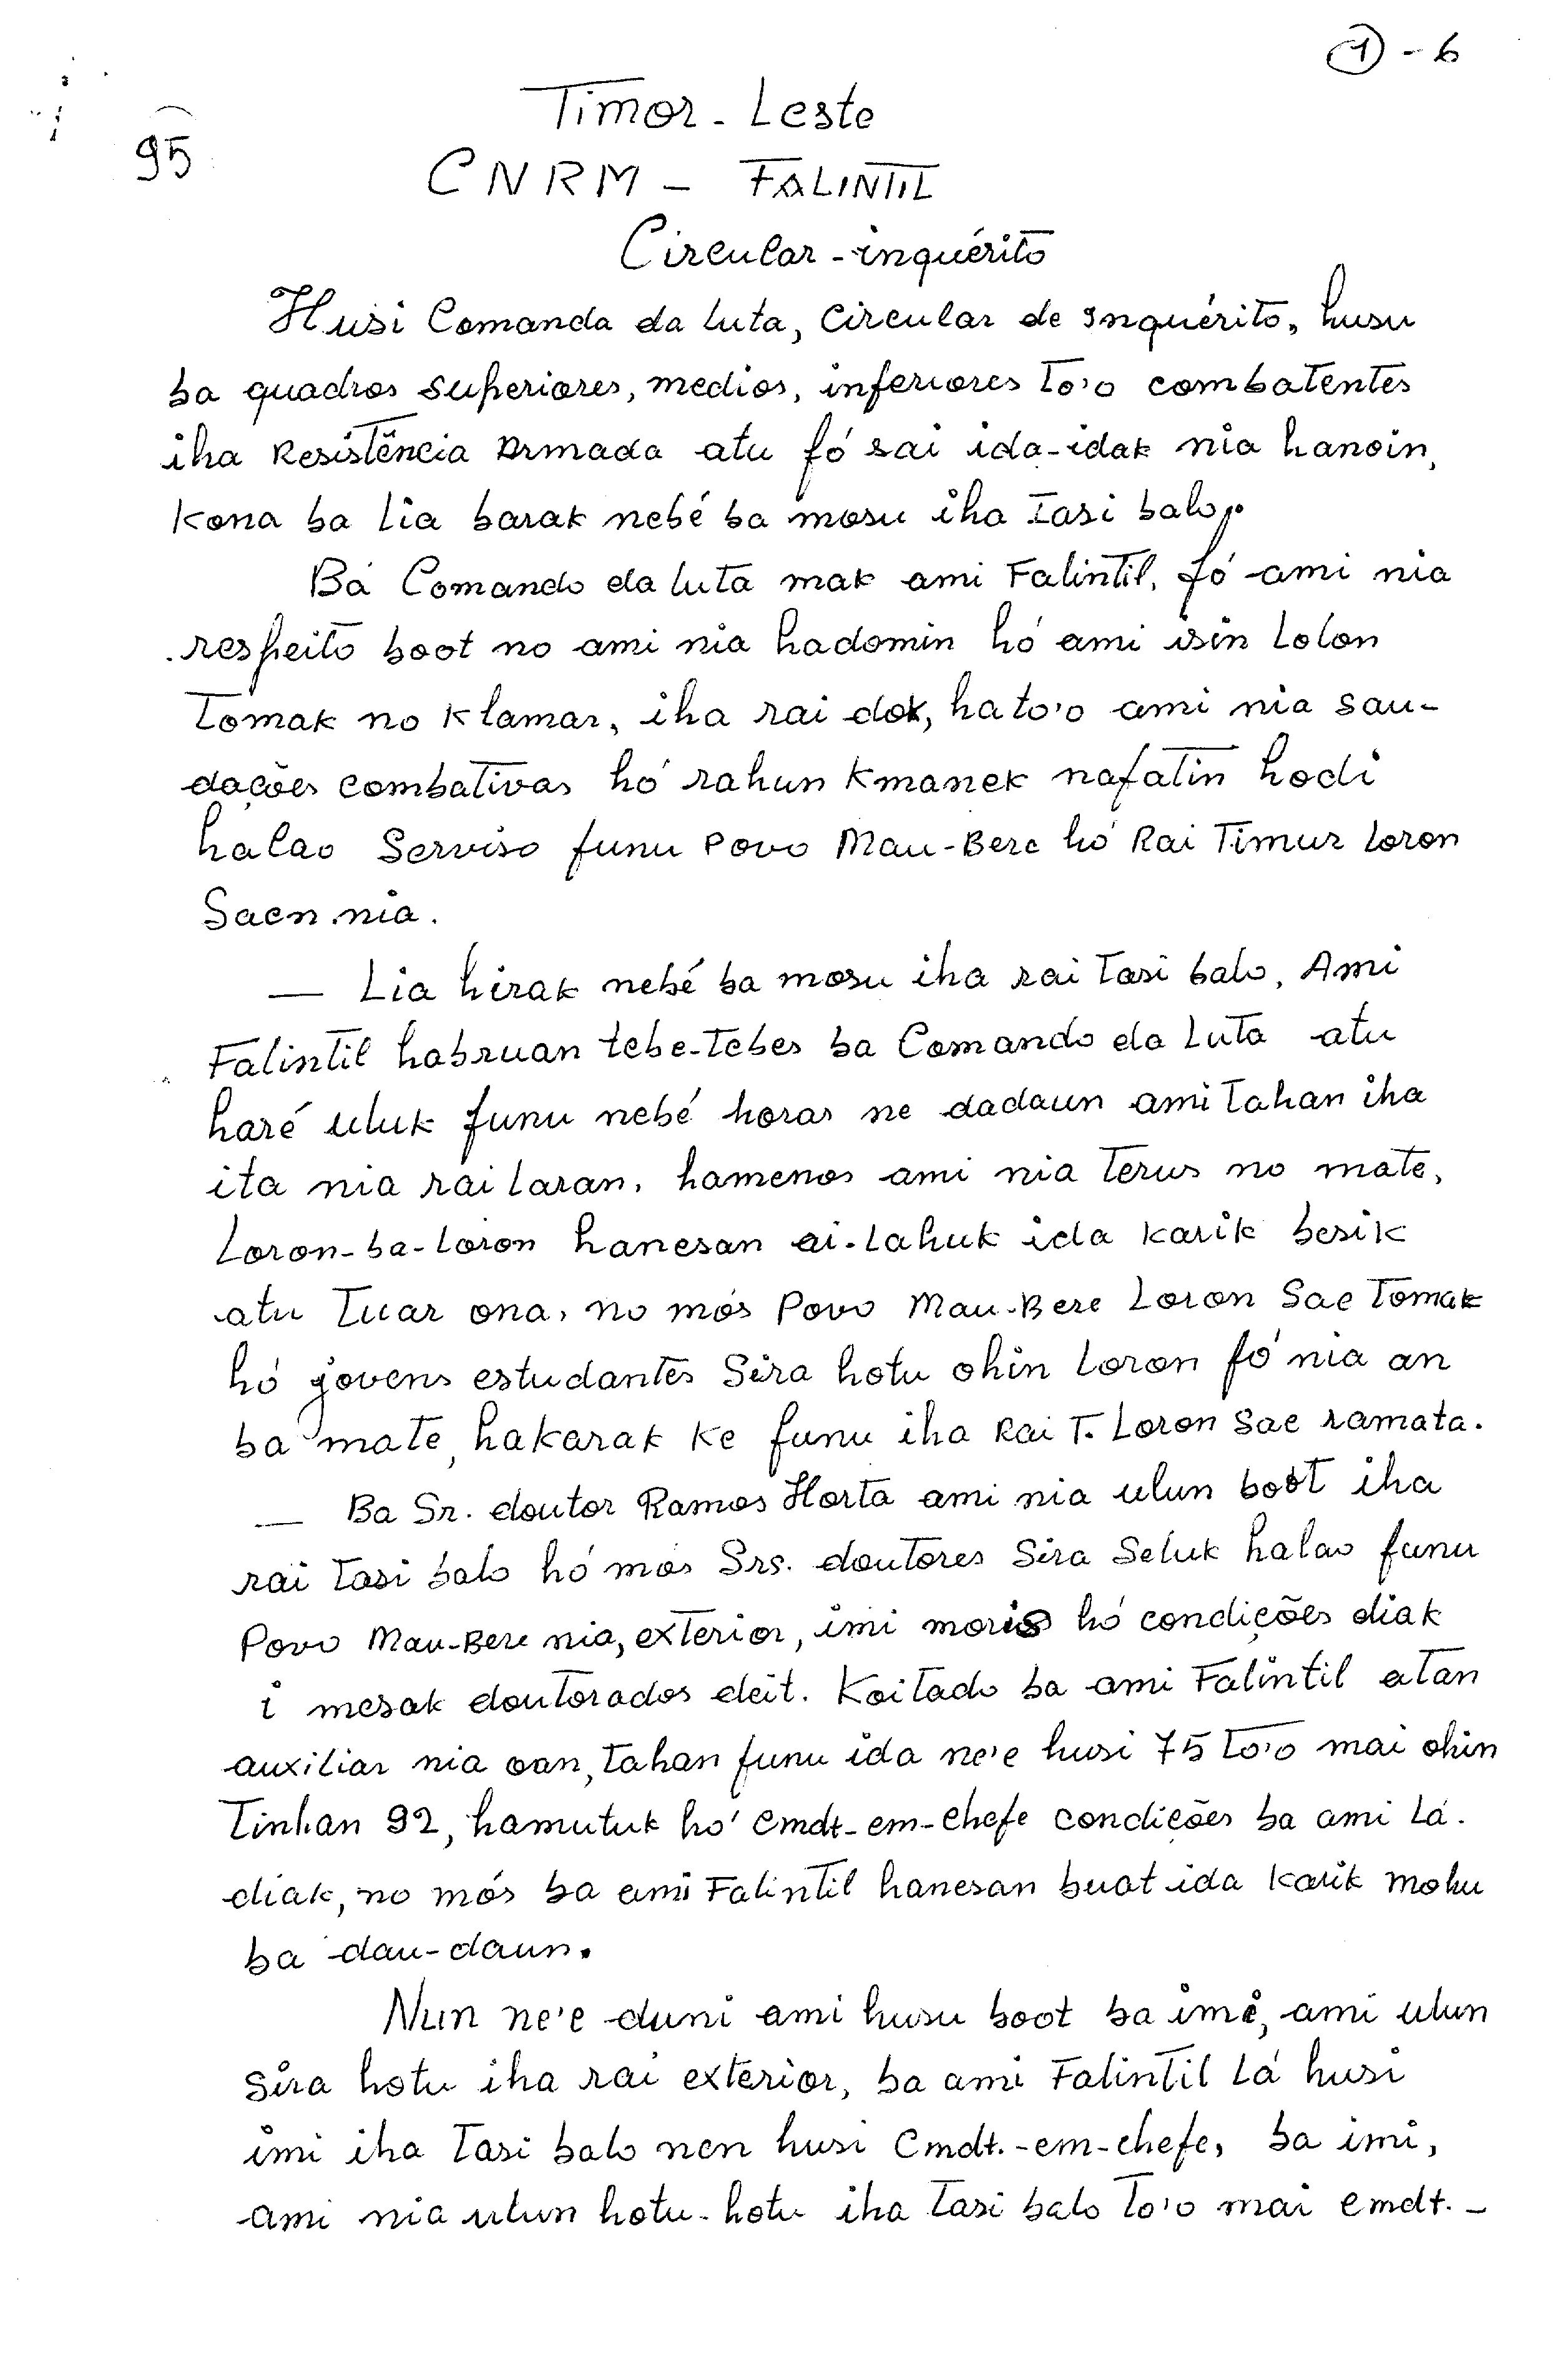 ① - 6
95
Timor - Leste
CNRM - FALINTIL
Circular - inquérito
Husi Comanda da luta, Circular de Inquérito, husu
ba quadros superiores, medios, inferiores to'o combatentes
iha Resistência Armada atu fó sai ida-idak nia hanoin,
kona ba lia barak nebé ba mosu iha Tasi balo.
Bá Comando da luta mak ami Falintil, fó ami nia
respeito boot no ami nia hadomin hó ami isin lolon
Tomak no klamar, iha rai dok, hato'o ami nia sau-
dações combativas hó rahun kmanek nafatin hodi
halao Serviso funu Povo Mau-Bere hó Rai Timur Loron
Saen nia.
— Lia hirak nebé ba mosu iha rai Tasi balo, Ami
Falintil habruan tebe-tebes ba Comando da Luta atu
haré uluk funu nebé horas ne dadaun ami tahan iha
ita nia rai laran, hamenos ami nia Terus no mate,
Loron-ba-loron hanesan ai-lahuk ida karik besik
atu Tuar ona, no mós Povo Mau-Bere Loron Sae Tomak
hó jovens estudantes Sira hotu ohin Loron fó nia an
ba mate, hakarak ke funu iha Rai T. Loron Sae ramata.
— Ba Sr. doutor Ramos Horta ami nia ulun boot iha
rai Tasi balo hó mos Srs. doutores Sira Seluk halao funu
Povo Mau-Bere nia, exterior, imi moris hó condições diak
i mesak doutorados deit. Koitado ba ami Falintil atan
auxiliar nia oan, tahan funu ida ne'e husi 75 to'o mai ohin
Tinhan 92, hamutuk hó Cmdt-em-chefe condições ba ami Lá
diak, no mós ba ami Falintil hanesan buat ida karik mohu
ba dau-daun.
Nun ne'e duni ami husu boot ba imi, ami ulun
Sira hotu iha rai exterior, ba ami Falintil Lá husi
imi iha Tasi balo nen husi Cmdt.-em-chefe, ba imi,
ami nia ulun hotu-hotu iha Tasi balo To'o mai Cmdt.-